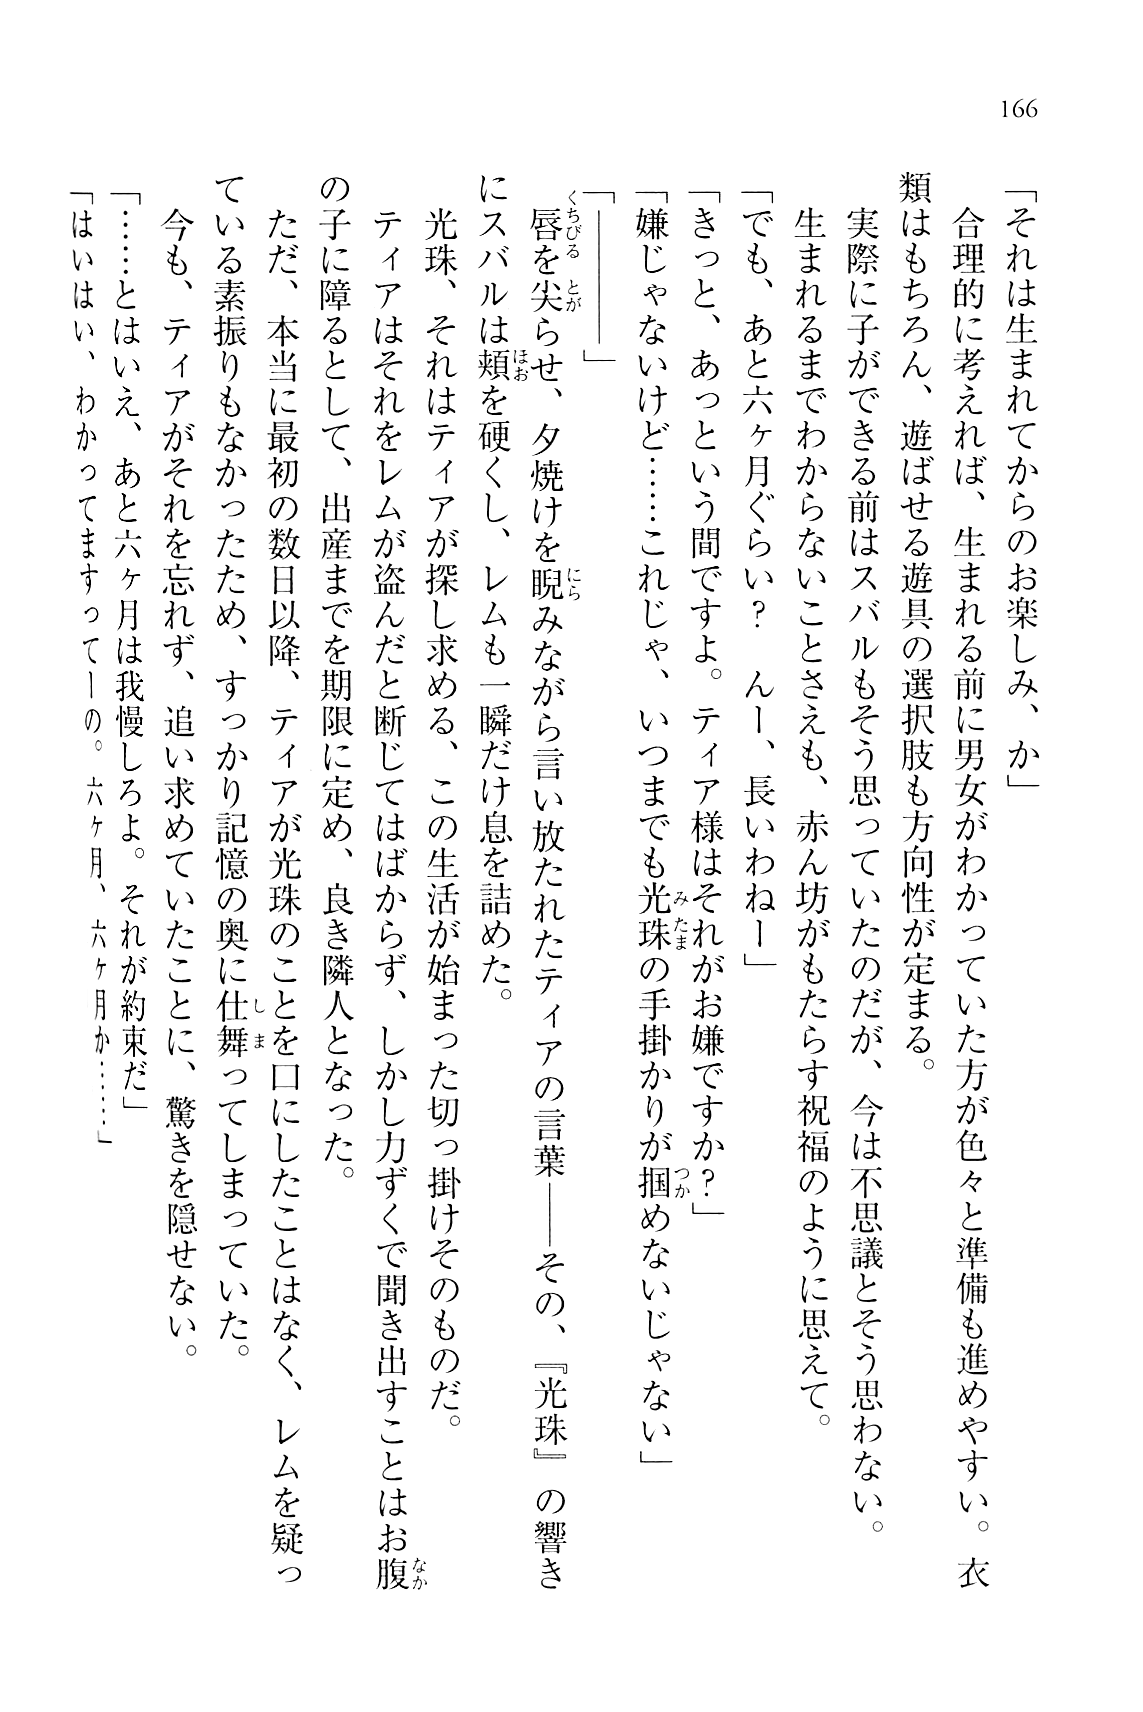 166
「それは生まれてからのお楽しみ、か」
合理的に考えれば、生まれる前に男女がわかっていた方が色々と準備も進めやすい。衣
類はもちろん、遊ばせる遊具の選択肢も方向性が定まる。
実際に子ができる前はスバルもそう思っていたのだが、今は不思議とそう思わない。
生まれるまでわからないことさえも、赤ん坊がもたらす祝福のように思えて。
「でも、あと六ヶ月ぐらい？　んー、長いわねー」
「きっと、あっという間ですよ。ティア様はそれがお嫌ですか？」
「嫌じゃないけど……これじゃ、いつまでも光珠の手掛かりが掴めないじゃない」
「――――」
唇を尖らせ、夕焼けを睨みながら言い放たれたティアの言葉――その、『光珠』の響き
にスバルは頬を硬くし、レムも一瞬だけ息を詰めた。
光珠、それはティアが探し求める、この生活が始まった切っ掛けそのものだ。
ティアはそれをレムが盗んだと断じてはばからず、しかし力ずくで聞き出すことはお腹
の子に障るとして、出産までを期限に定め、良き隣人となった。
ただ、本当に最初の数日以降、ティアが光珠のことを口にしたことはなく、レムを疑っ
ている素振りもなかったため、すっかり記憶の奥に仕舞ってしまっていた。
今も、ティアがそれを忘れず、追い求めていたことに、驚きを隠せない。
「……とはいえ、あと六ヶ月は我慢しろよ。それが約束だ」
「はいはい、わかってますってーの。六ヶ月、六ヶ月か……」